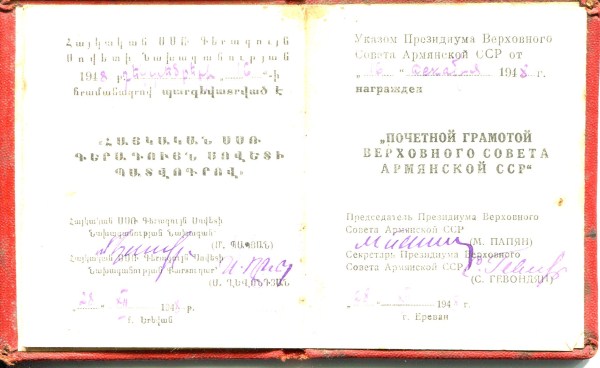 Հայկական ՍՍՌ Գերագույն
Սովետի Նախագահության
194 8 դեկտեմբերի „ 6 “-ի
հրամանագրով պարգևատրված է
«ՀԱՅԿԱԿԱՆ ՍՍՌ
ԳԵՐԱԳՈՒՅՆ ՍՈՎԵՏԻ
ՊԱՏՎՈԳՐՈՎ»
Հայկական ՍՍՌ Գերագույն Սովետի
Նախագահության Նախագահ
(Մ. ՊԱՊՅԱՆ)
Հայկական ՍՍՌ Գերագույն Սովետի
Նախագահության Քարտուղար
(Ս. ՂԵՎՈՆԴՅԱՆ)
194 թ.
ք. Երևան
Указом Президиума Верховного
Совета Армянской ССР от
„ “ декабря 194 8 г.
награжден
„ПОЧЕТНОЙ ГРАМОТОЙ
ВЕРХОВНОГО СОВЕТА
АРМЯНСКОЙ ССР“
Председатель Президиума Верховного
Совета Армянской ССР
(М. ПАПЯН)
Секретарь Президиума Верховного
Совета Армянской ССР
(С. ГЕВОНДЯН)
194 г.
г. Ереван